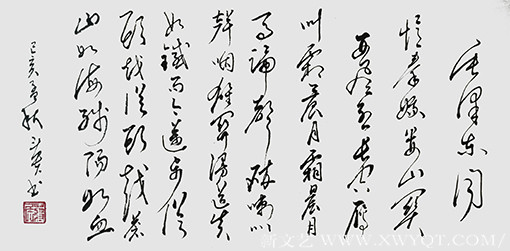 毛泽东词
忆秦娥娄山关
西风烈长空雁
叫霜晨月霜晨月
马蹄声碎喇叭
声咽雄关漫道真
如铁而今迈步从
头越从头越苍
山如海残阳如血
己亥孟秋 书
新文艺 WWW.XWYQT.COM